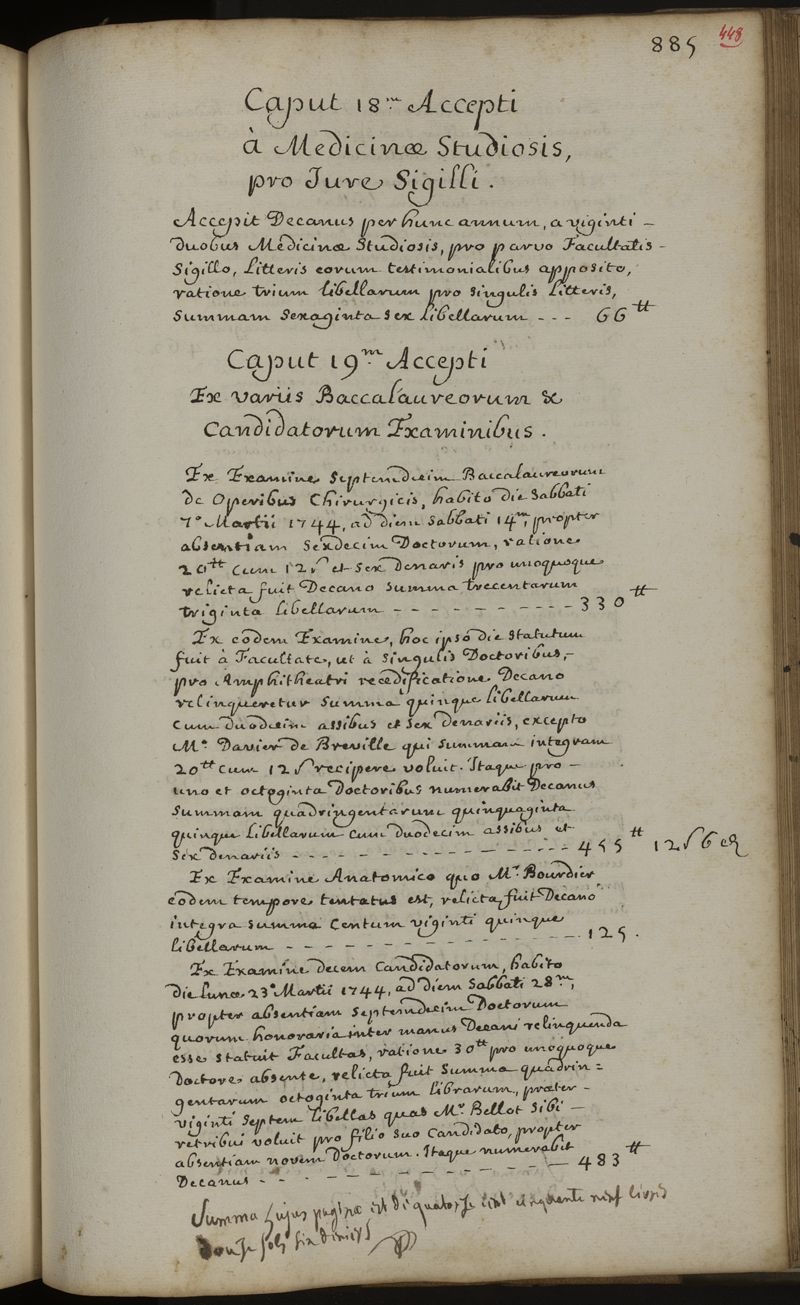 885 448
Caput 18.m Accepti
à Medicinæ Studiosis,
pro Jure Sigilli.
Accepit Decanus per hunc annum, a viginti -
duobus Medicinæ Studiosis, pro parvo Facultatis -
Sigillo, Litteris eorum testimonialibus apposito,
ratione trium libellarum pro singulis Litteris,
Summam Sexaginta Sex Libellarum - - - 66 tt
Caput 19.m Accepti
Ex variis Baccalaureorum &
Candidatorum Examinibus.
Ex Examine Septemdecim Baccalaureorum
de Operibus Chirurgicis, habito die Sabbati
7.a Martii 1744, ad diem Sabbati 14.m, propter
absentiam Sexdecim Doctorum, ratione
20 tt cum 12 s et Sex denariis pro unoquoque
relicta fuit Decano Summa trecentarum
triginta libellarum - - - - - - - - - 330 tt
Ex eodem Examine, hoc ipso die Statutum
fuit à Facultate, ut à Singulis Doctoribus, -
pro Amphitheatri reedificatione Decano
relinqueretur Summa quinque libellarum
cum duodecim assibus et Sex denariis, excepto
M.o Davier de Breville qui Summam integram
20 tt cum 12 s recipere voluit. Itaque pro -
uno et octoginta Doctoribus numerabit Decanus
Summam quadringentarum quinquaginta
quinque libellarum cum duodecim assibus et
Sex denariis - - - - - - - - - - - - - - 455 tt 12 s 6 d
Ex Examine Anatomico quo M.r Bourdier
eodem tempore tentatus est, relicta fuit Decano
integra Summa Centum viginti quinque
libellarum - - - - - - - - - - - - - - 125.
Ex Examine decem Candidatorum, habito
die Lunæ 23.a Martii 1744, ad diem Sabbati 28.m,
propter absentiam Septemdecim Doctorum
quorum honoraria inter manus Decani relinquenda
esse statuit Facultas, ratione 30 tt pro unoquoque
Doctore absente, relicta fuit Summa quadrin =
gentarum octoginta trium librarum, præter -
viginti Septem libellas quas M.r Bellot Sibi -
retribui voluit pro filio suo Candidato, propter
absentiam novem Doctorum. Itaque numerabit
Decanus - - - - - - - - - - - - - - 483 tt
Summa hujus paginæ est de quatorze cent cinquante neuf livres
douze sols six deniers